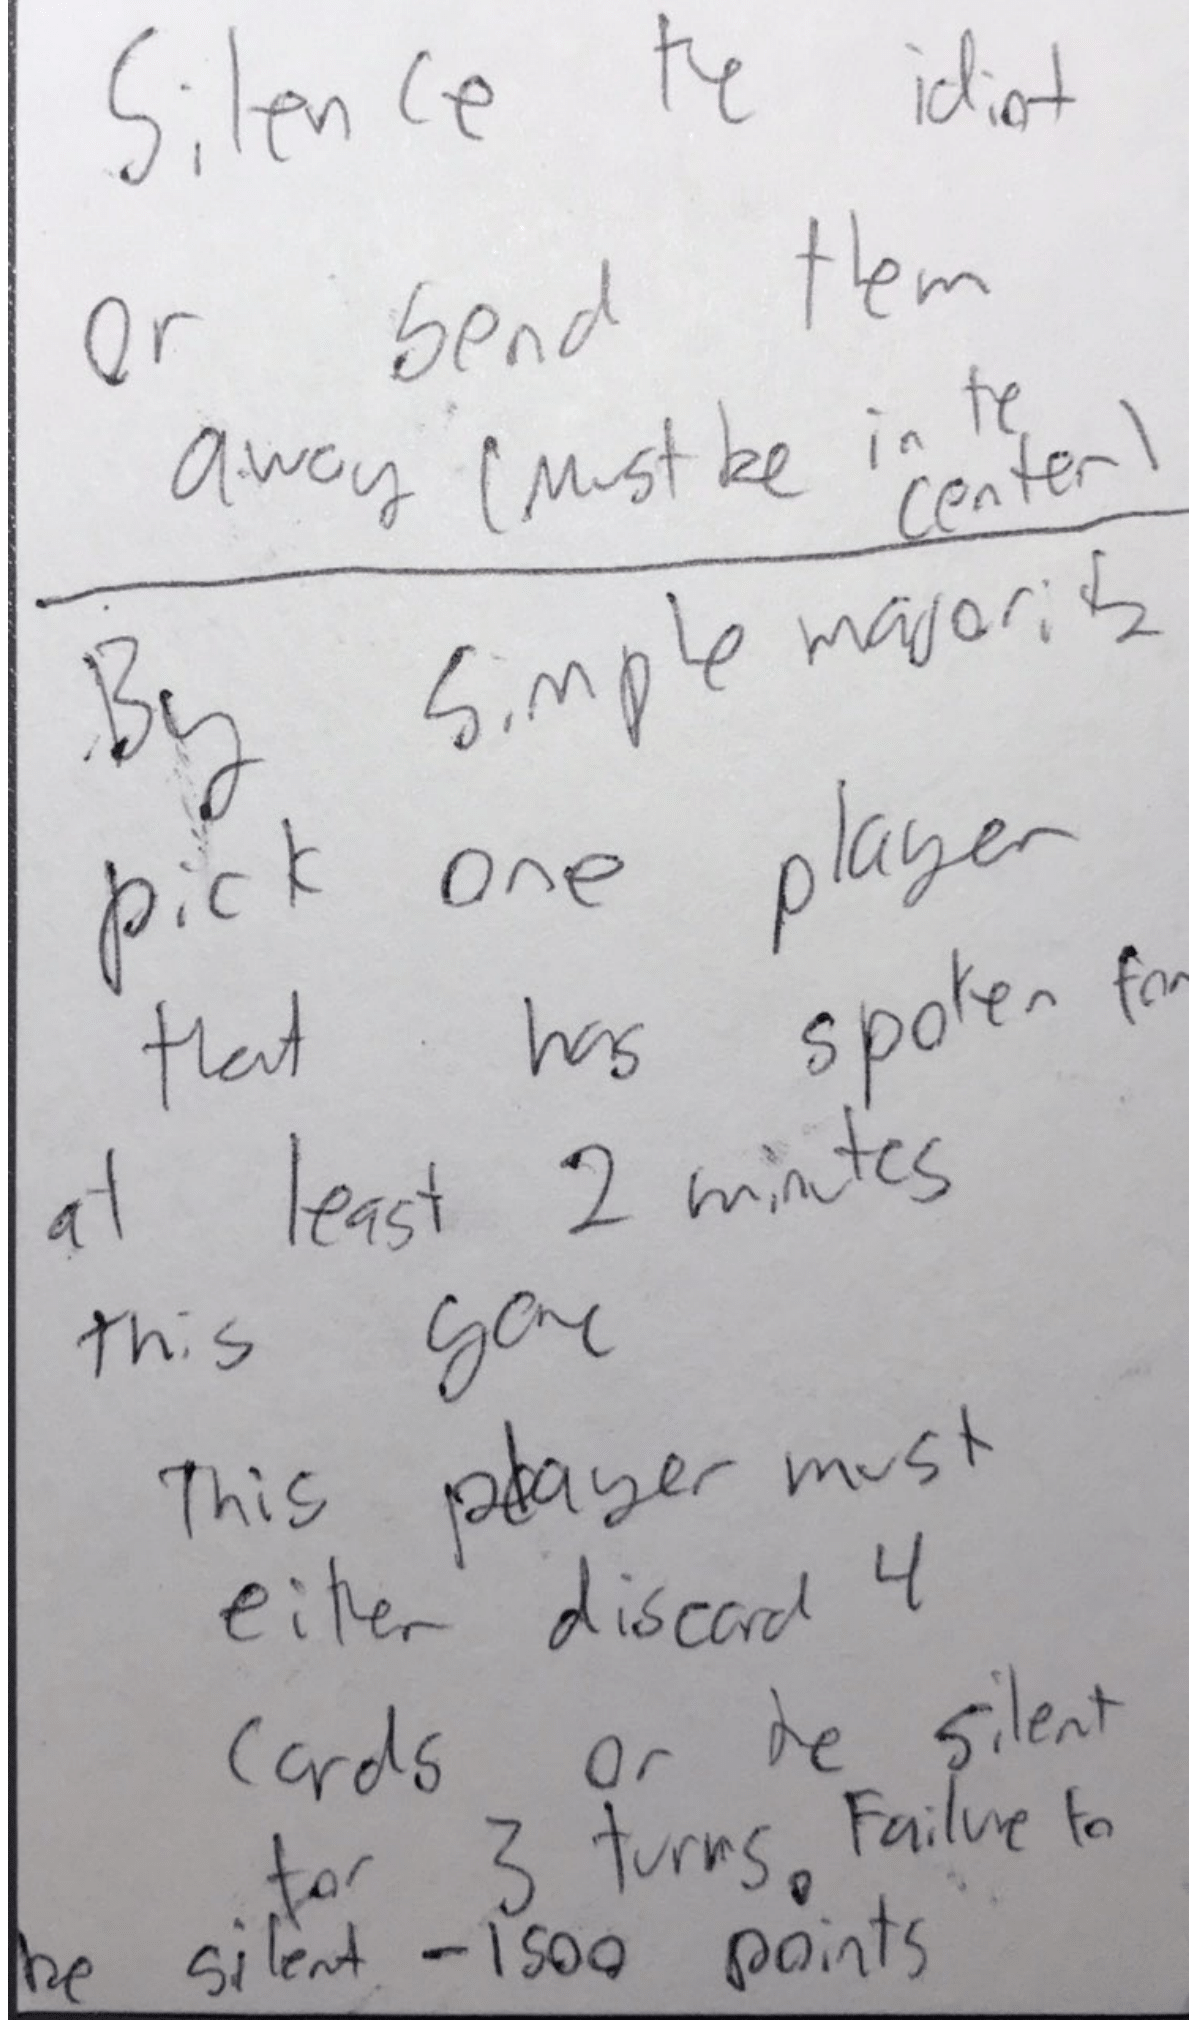 Silence the idiot
or send them
away (must be in the
center)
By simple majority
pick one player
that has spoken for
at least 2 minutes
this game
This player must
either discard 4
cards or be silent
for 3 turns. Failure to
be silent -1500 points